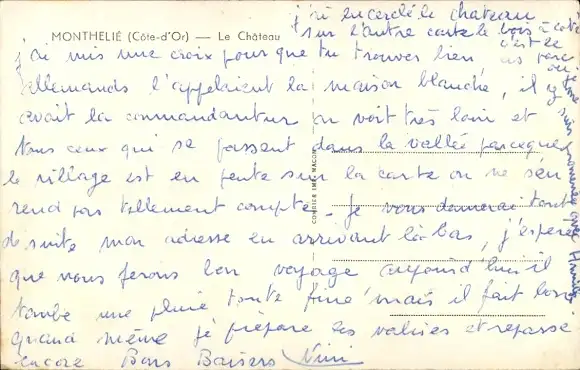 j'ai encerclé le chateau
MONTHELIÉ (Côte-d'Or) — Le Château
sur l'autre carte le bois à coté
c'est le
j'ai mis une croix pour que tu trouves bien,
allemands l'appelaient la maison blanche, il y
avait la commandantur on voit très loin et
tous ceux qui se passent dans la vallée parceque
le village est en pente sur la carte on ne s'en
rend pas tellement compte. Je vous donnerai tout
de suite mon adresse en arrivant là-bas, j'espère
que nous ferons bon voyage aujourd'hui il
tombe une pluie toute fine mais il fait bon
quand même je prépare les valises et repasse
encore Bons Baisers
COMBIER IMP. MACON